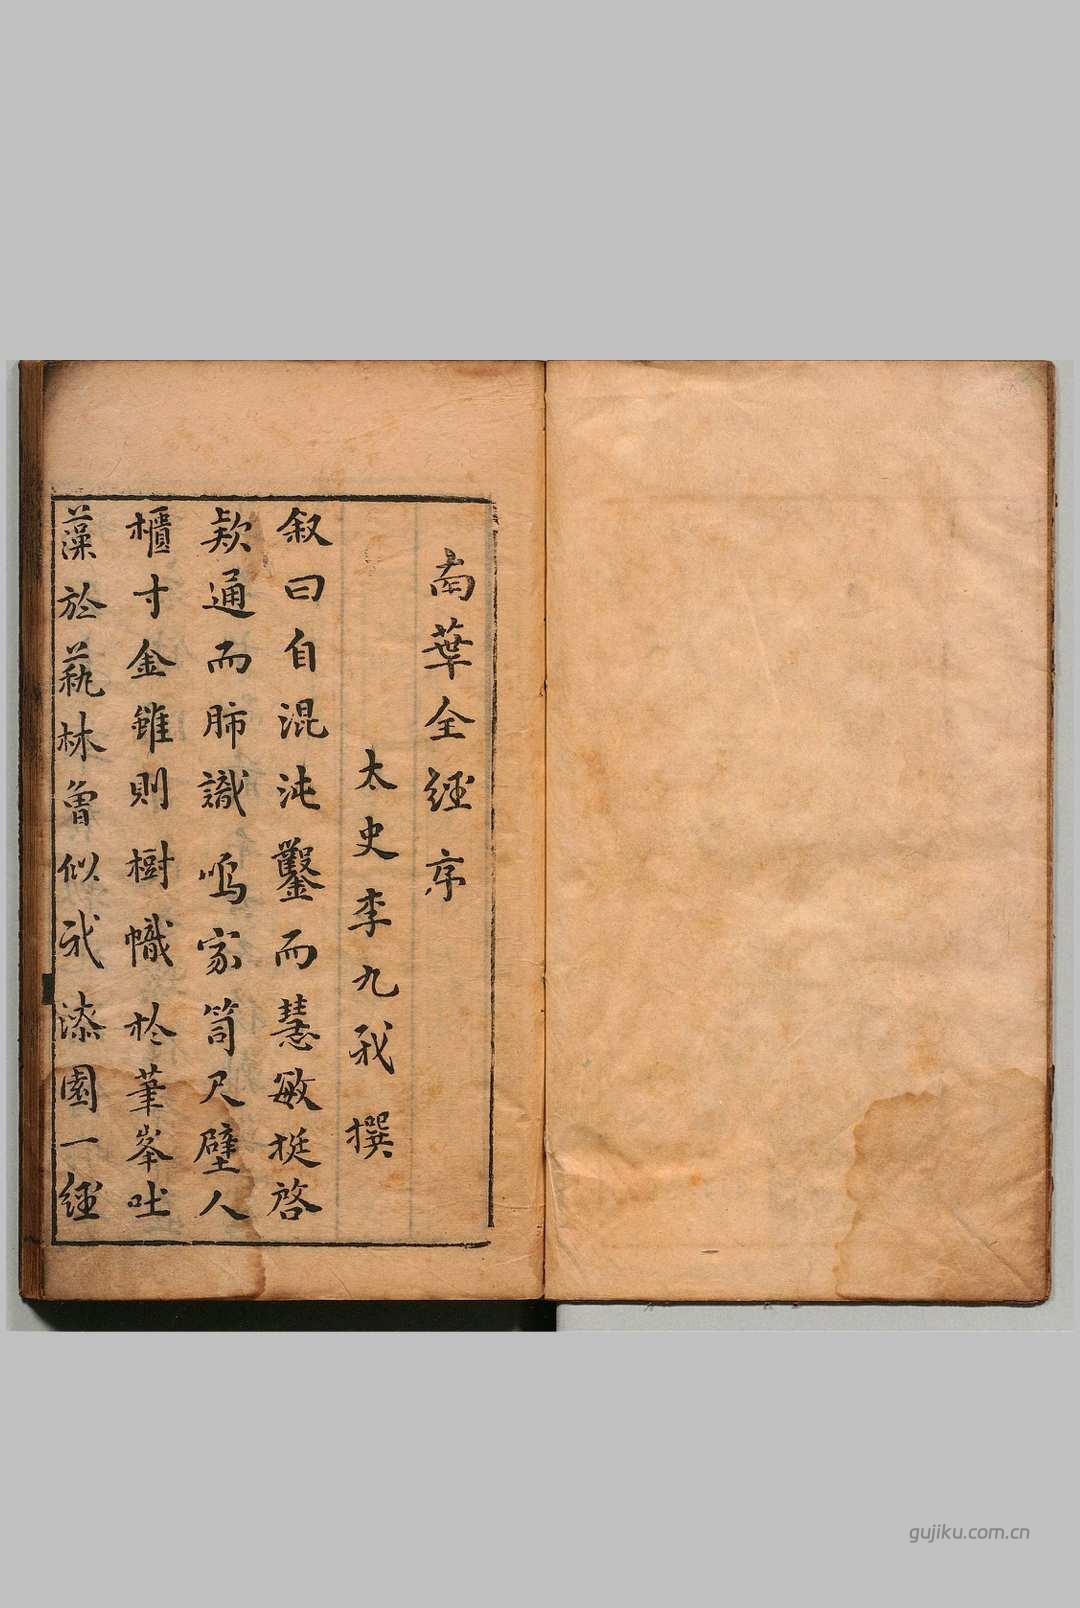 南華全經序
太史李九我撰
叙曰自混沌鑿而慧敏挺啓
欵通而肺識鳴家笥尺璧人
櫃寸金雖則樹幟於筆峯吐
藻於蓺林曾似我漆園一經
gujiku.com.cn